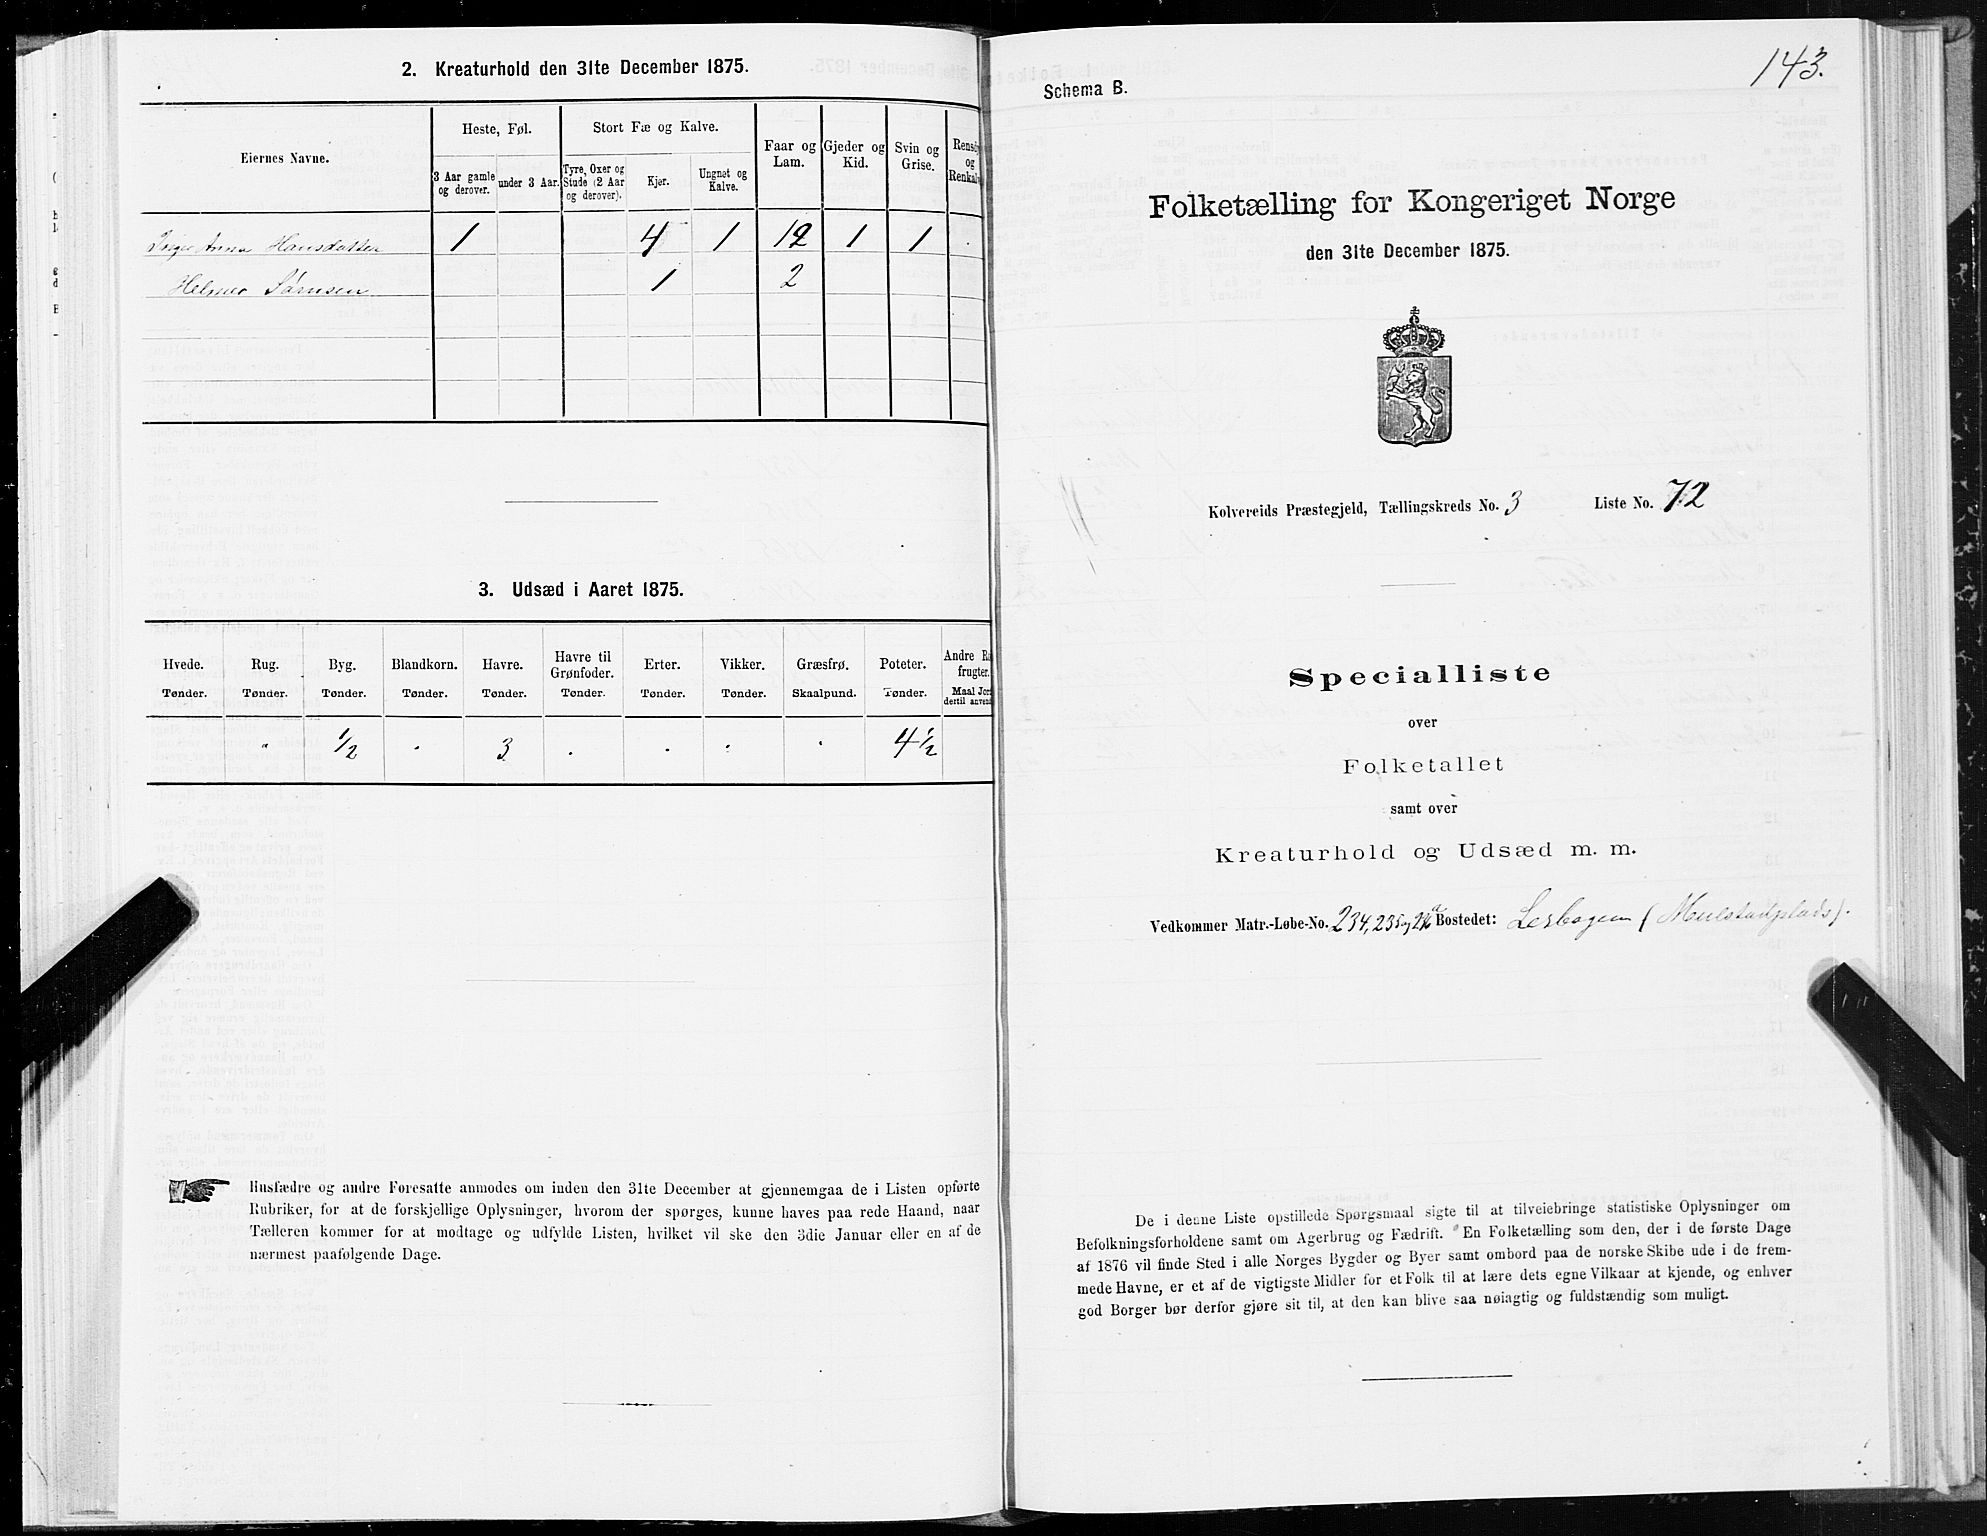 2. Kreaturhold den 31te December 1875.
Eiernes Navne.
Heste, Føl.
3 Aar gamle og derover.
under 3 Aar.
Stort Fæ og Kalve.
Tyre, Oxer og Stude (2 Aar og derover).
Kjer.
Ungnøt og Kalve.
Faar og Lam.
Gjeder og Kid.
Svin og Grise.
Rensdy
og
Renkalv
Anna Hansdatter 1 4 1 12 1 1
Helmer 1 2
3. Udsæd i Aaret 1875.
Hvede. Tønder.
Rug. Tønder.
Byg. Tønder.
Blandkorn. Tønder.
Havre. Tønder.
Havre til Grønfoder. Tønder.
Erter. Tønder.
Vikker. Tønder.
Græsfrø. Skaalpund.
Poteter. Tønder.
Andre
frugter.
Maal Jor
dertil anvend
" 1/2 " 3 " " " " 4 1/2
Husfædre og andre Foresatte anmodes om inden den 31te December at gjennemgaa de i Listen opførte
Rubriker, for at de forskjellige Oplysninger, hvorom der spørges, kunne haves paa rede Haand, naar
Tælleren kommer for at modtage og udfylde Listen, hvilket vil ske den 3die Januar eller en af de
nærmest paafølgende Dage.
143.
Schema B.
Folketælling for Kongeriget Norge
den 31te December 1875.
Kolvereids Præstegjeld, Tællingskreds No. 3 Liste No. 72
Specialliste
over
Folketallet
samt over
Kreaturhold og Udsæd m. m.
Vedkommer Matr.-Løbe-No. 234, 235 og Bostedet:
De i denne Liste opstillede Spørgsmaal sigte til at tilveiebringe statistiske Oplysninger om
Befolkningsforholdene samt om Agerbrug og Fædrift. En Folketælling som den, der i de første Dage
af 1876 vil finde Sted i alle Norges Bygder og Byer samt ombord paa de norske Skibe ude i de frem-
mede Havne, er et af de vigtigste Midler for et Folk til at lære dets egne Vilkaar at kjende, og enhver
god Borger bør derfor gjøre sit til, at den kan blive saa nøiagtig og fuldstændig som muligt.